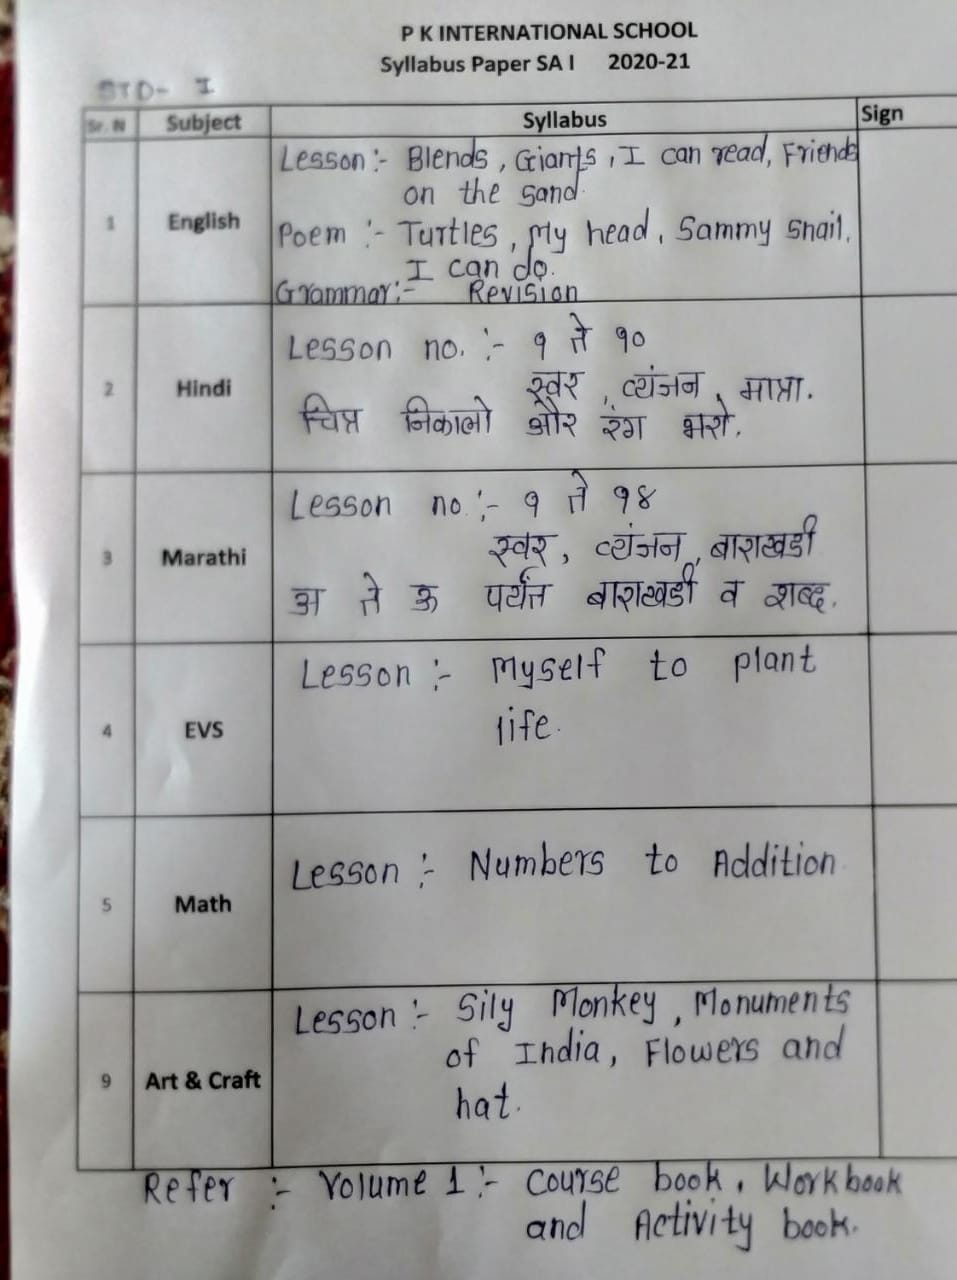 P K INTERNATIONAL SCHOOL
Syllabus Paper SA I 2020-21
STD- I
Sr. N Subject Syllabus Sign
1 English Lesson:- Blends, Giants, I can read, Friends
on the sand
Poem:- Turtles, My head, Sammy snail.
I can do.
Grammar:- Revision
2 Hindi Lesson no.:- १ ते १०
स्वर, व्यंजन, मात्रा.
चित्र निकालो और रंग भरो.
3 Marathi Lesson no.:- १ ते १४
स्वर, व्यंजन, बाराखडी
अ ते ऊ पर्यंत बाराखडी व शब्द.
4 EVS Lesson:- Myself to plant
life.
5 Math Lesson:- Numbers to Addition
9 Art & Craft Lesson:- Sily Monkey, Monuments
of India, Flowers and
hat.
Refer:- Volume 1:- Course book, Workbook
and Activity book.